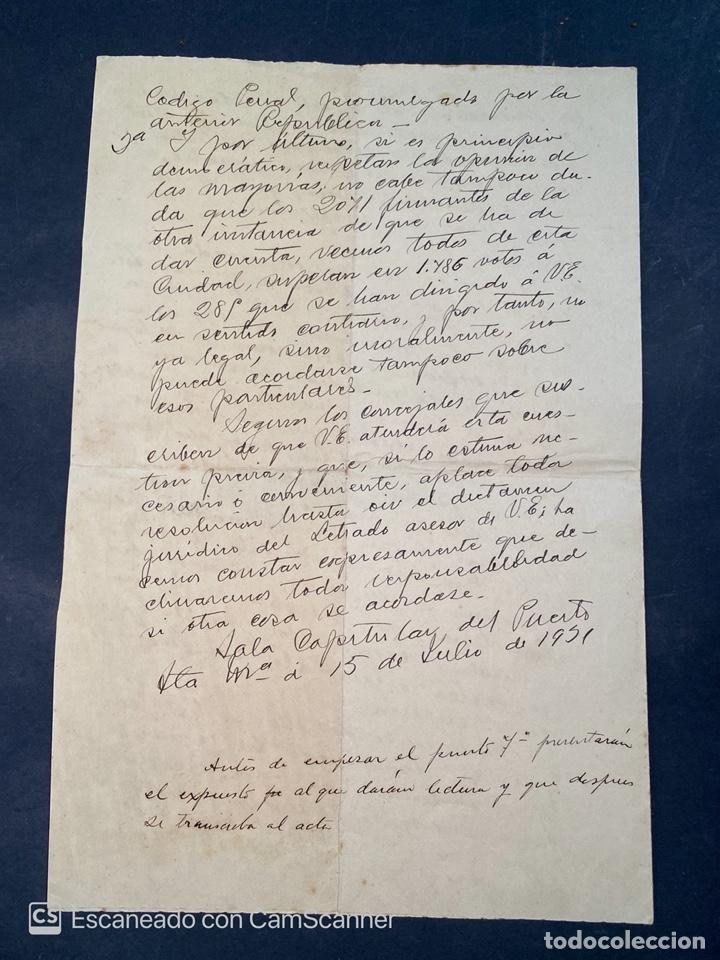 Codigo Penal, promulgado por la
anterior Republica —
5ª Y por último, si es principio
democrático, respetar la opinion de
las mayorías, no cabe tampoco du-
da que los 2071 firmantes de la
otra instancia de que se ha de
dar cuenta, vecinos todos de esta
Ciudad, superan en 1.786 votos á
los 285 que se han dirigido á V.E.
en sentido contrario, y por tanto, no
ya legal, sino moralmente, no
puede acordarse tampoco sobre
esos particulares.-
Seguros los concejales que sus-
criben de que V.E. atenderá esta cues-
tion previa, y que, si lo estima ne-
cesario ó conveniente, aplace toda
resolucion hasta oir el dictamen
juridico del Letrado asesor de V.E; ha
cemos constar expresamente que de-
clinaremos toda responsabilidad
si otra cosa se acordase.-
Sala Capitular del Puerto
Sta Mª á 15 de Julio de 1931
Antes de empezar el punto 7º presentarán
el expuesto al que darám lectura y que despues
se transcriba al acta
CS Escaneado con CamScanner
todocoleccion